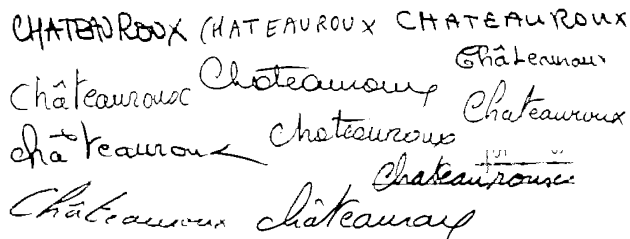 CHATEAUROUX CHATEAUROUX CHATEAUROUX
Châteauroux
Châteauroux Chateauroux Chateauroux
châteauroux Chateauroux
Chateauroux
Châteauroux châteauroux